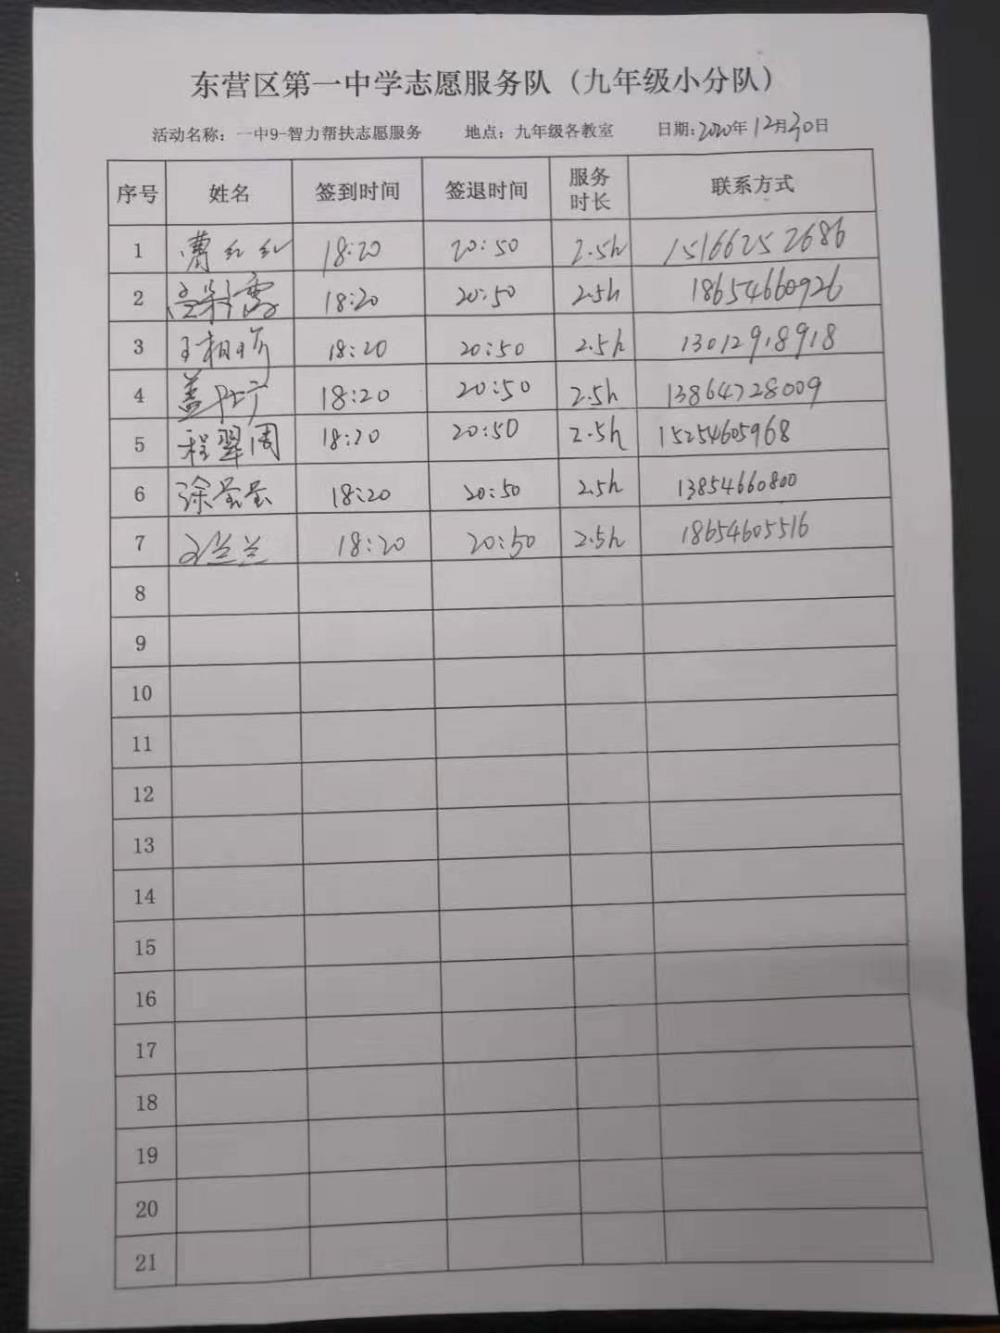 东营区第一中学志愿服务队（九年级小分队）
活动名称：一中9-智力帮扶志愿服务 地点：九年级各教室 日期：2020年12月30日
序号 姓名 签到时间 签退时间 服务时长 联系方式
1 红红 18:20 20:50 2.5h 15166252686
2 18:20 20:50 2.5h 18654660926
3 王相 18:20 20:50 2.5h 13012918918
4 盖 18:20 20:50 2.5h 13864728009
5 程翠周 18:20 20:50 2.5h 15254605968
6 徐莹莹 18:20 20:50 2.5h 13854660800
7 刘兰兰 18:20 20:50 2.5h 18654605516
8
9
10
11
12
13
14
15
16
17
18
19
20
21